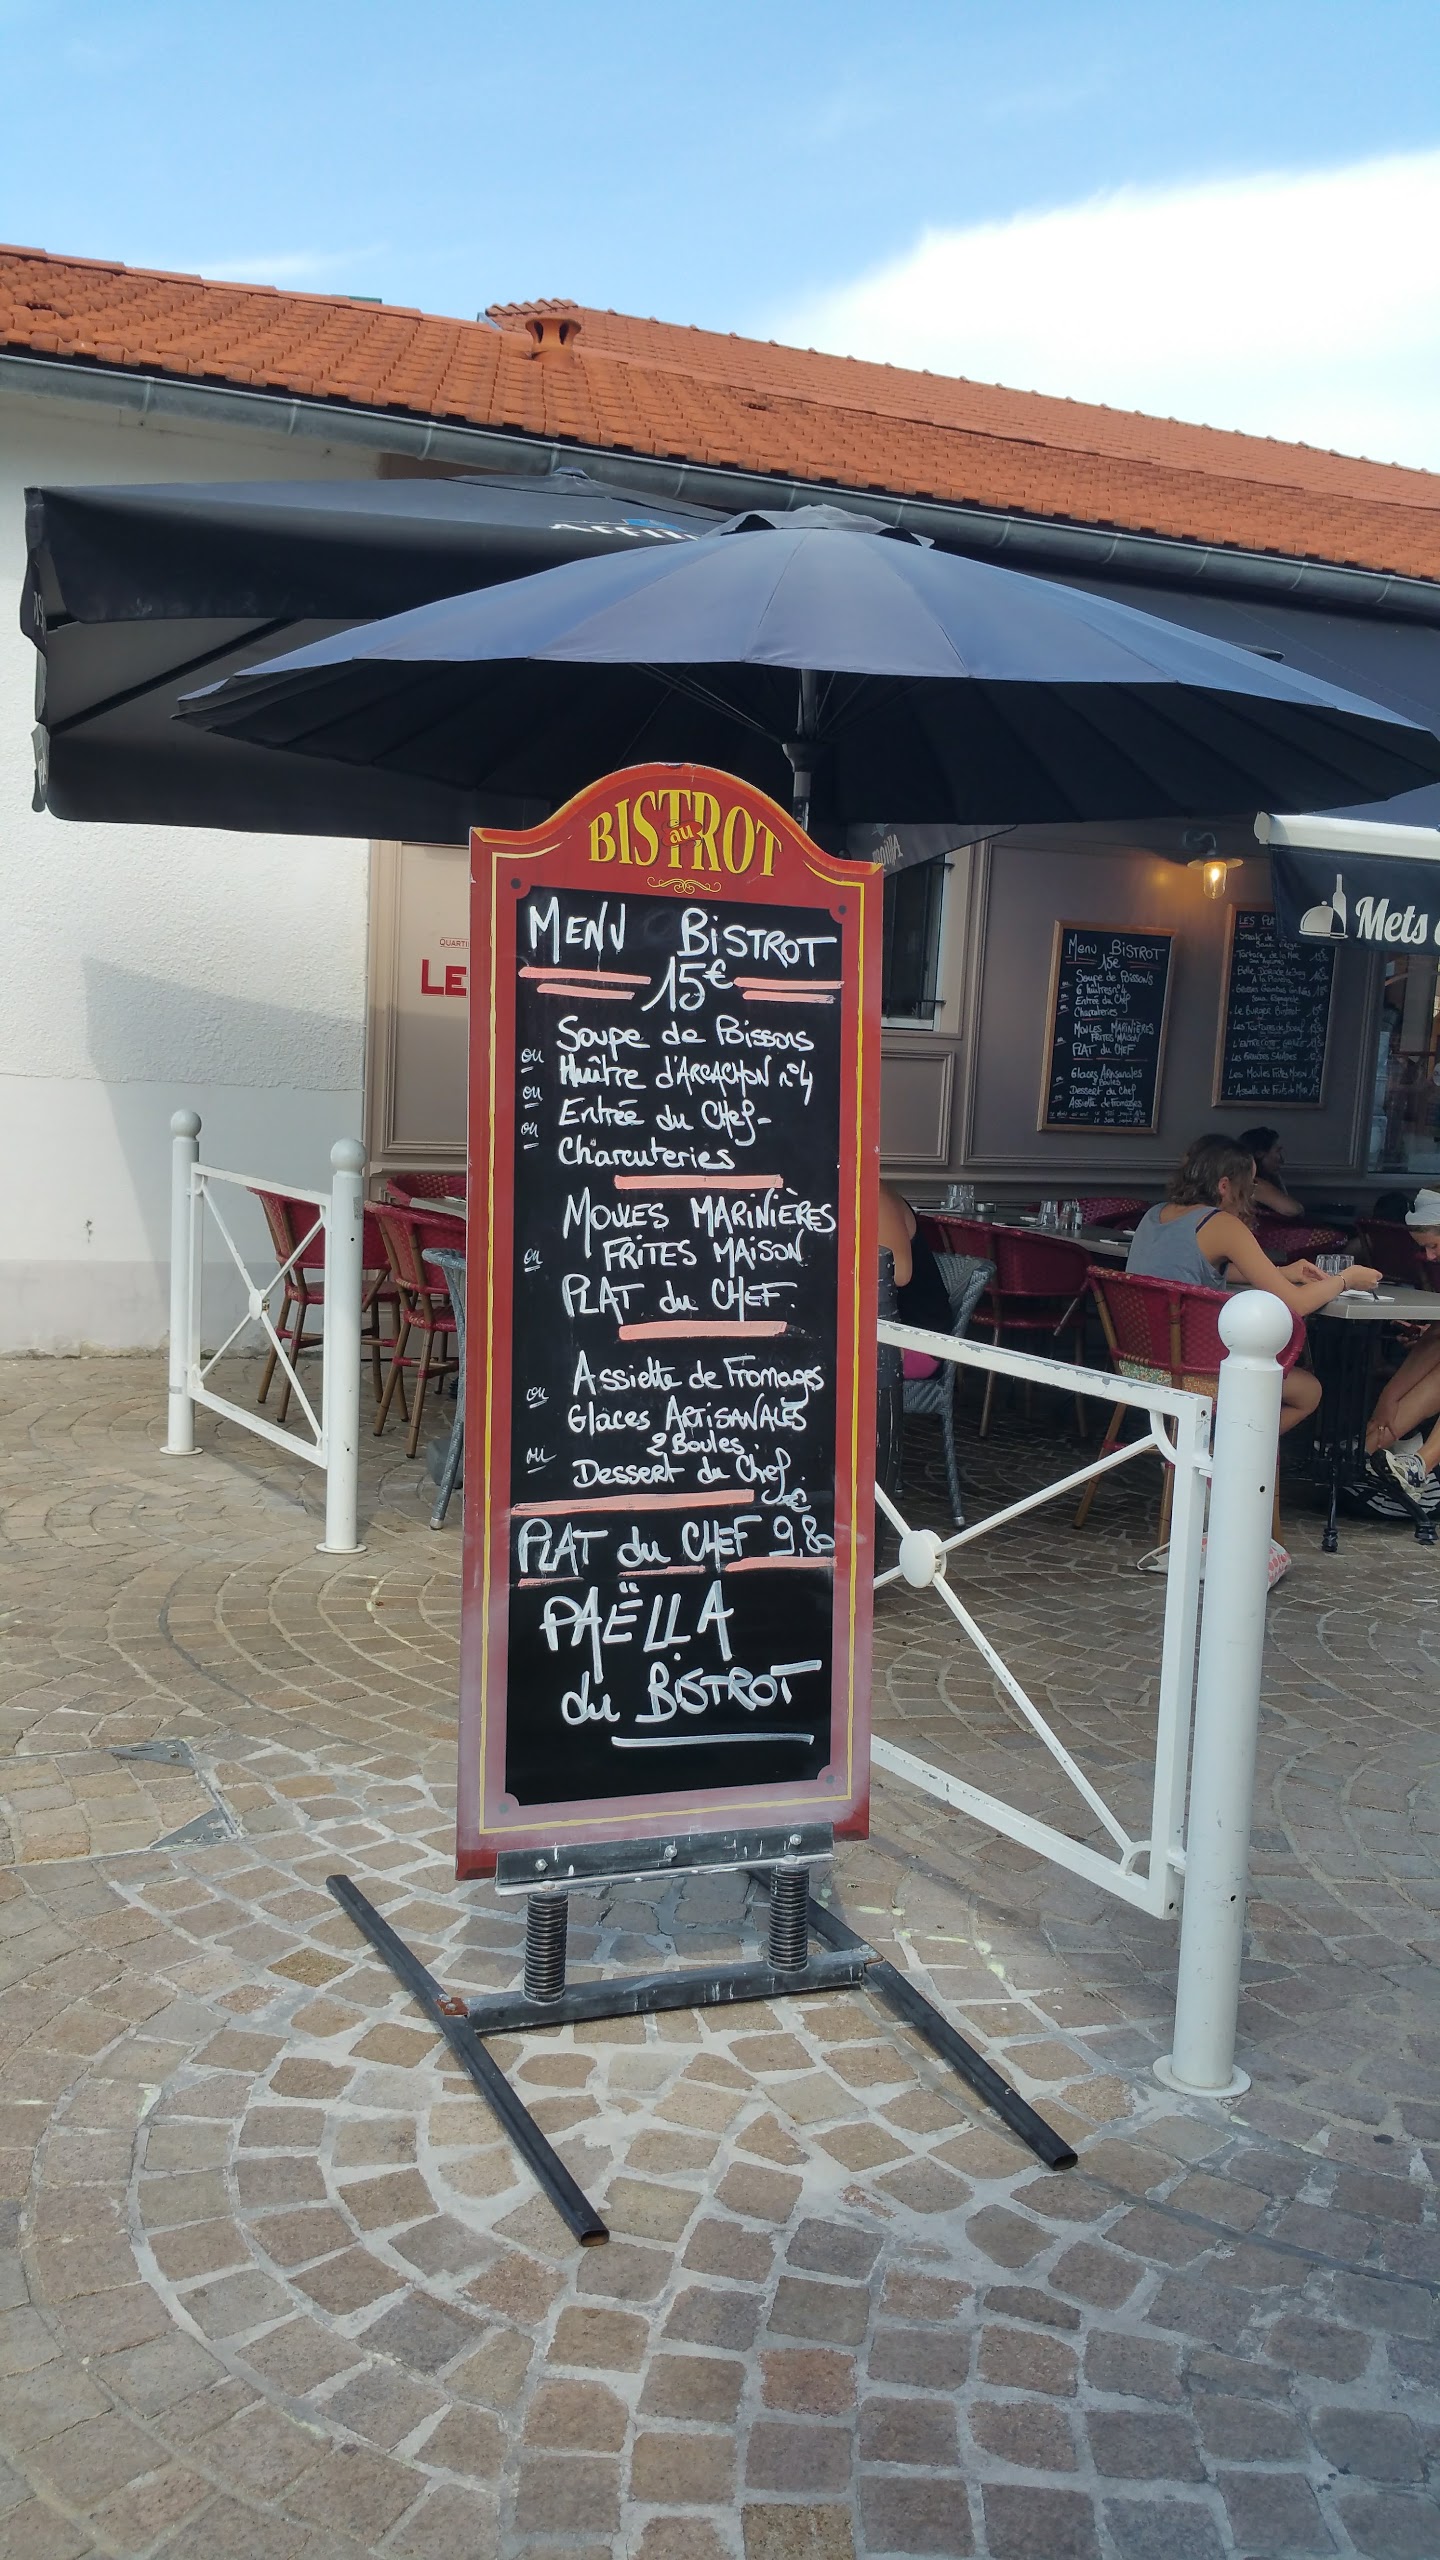 BISTROT
au
MENU BISTROT
15€
Soupe de Poissons
ou
Huître d'ARCACHON n°4
ou
Entrée du Chef-
ou
Charcuteries
MOULES MARINIÈRES
FRITES MAISON
ou
PLAT du CHEF.
Assiette de Fromages
ou
Glaces ARTISANALES
2 Boules
ou
Dessert du Chef.
PLAT du CHEF 9,80 €
PAËLLA
du BISTROT
QUARTI
LE
Mets
Menu BISTROT
15€
Soupe de Poissons
6 huîtres n°4
Entrée du Chef
Charcuteries
MOULES MARINIÈRES
FRITES MAISON
PLAT du CHEF
Glaces Artisanales
2 Boules
Dessert du Chef
Assiette de Fromages
LES PLA
Tartare de la Mer
Le Burger Bistrot
Les Tartares de Boeuf
Les Grandes Salades
Les Moules Frites Maison
L'Assiette de Fruits de Mer